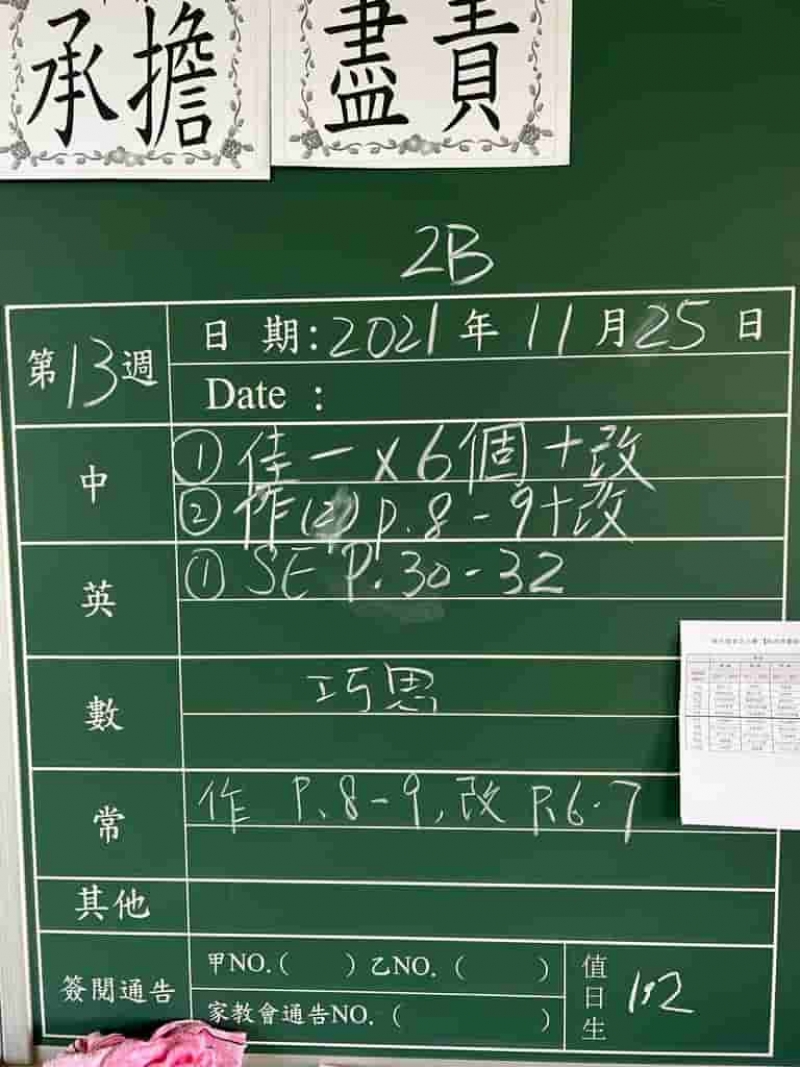 承擔 盡責
2B
第13週 日 期:2021年11月25日
Date :
中 ①佳一x6個+改
②作(二)p.8-9+改
英 ①SE P.30-32
數 巧思
常 作 P.8-9,改 P.6.7
其他
簽閱通告 甲NO.( ) 乙NO. ( )
家教會通告NO. ( )
值日生 1,2